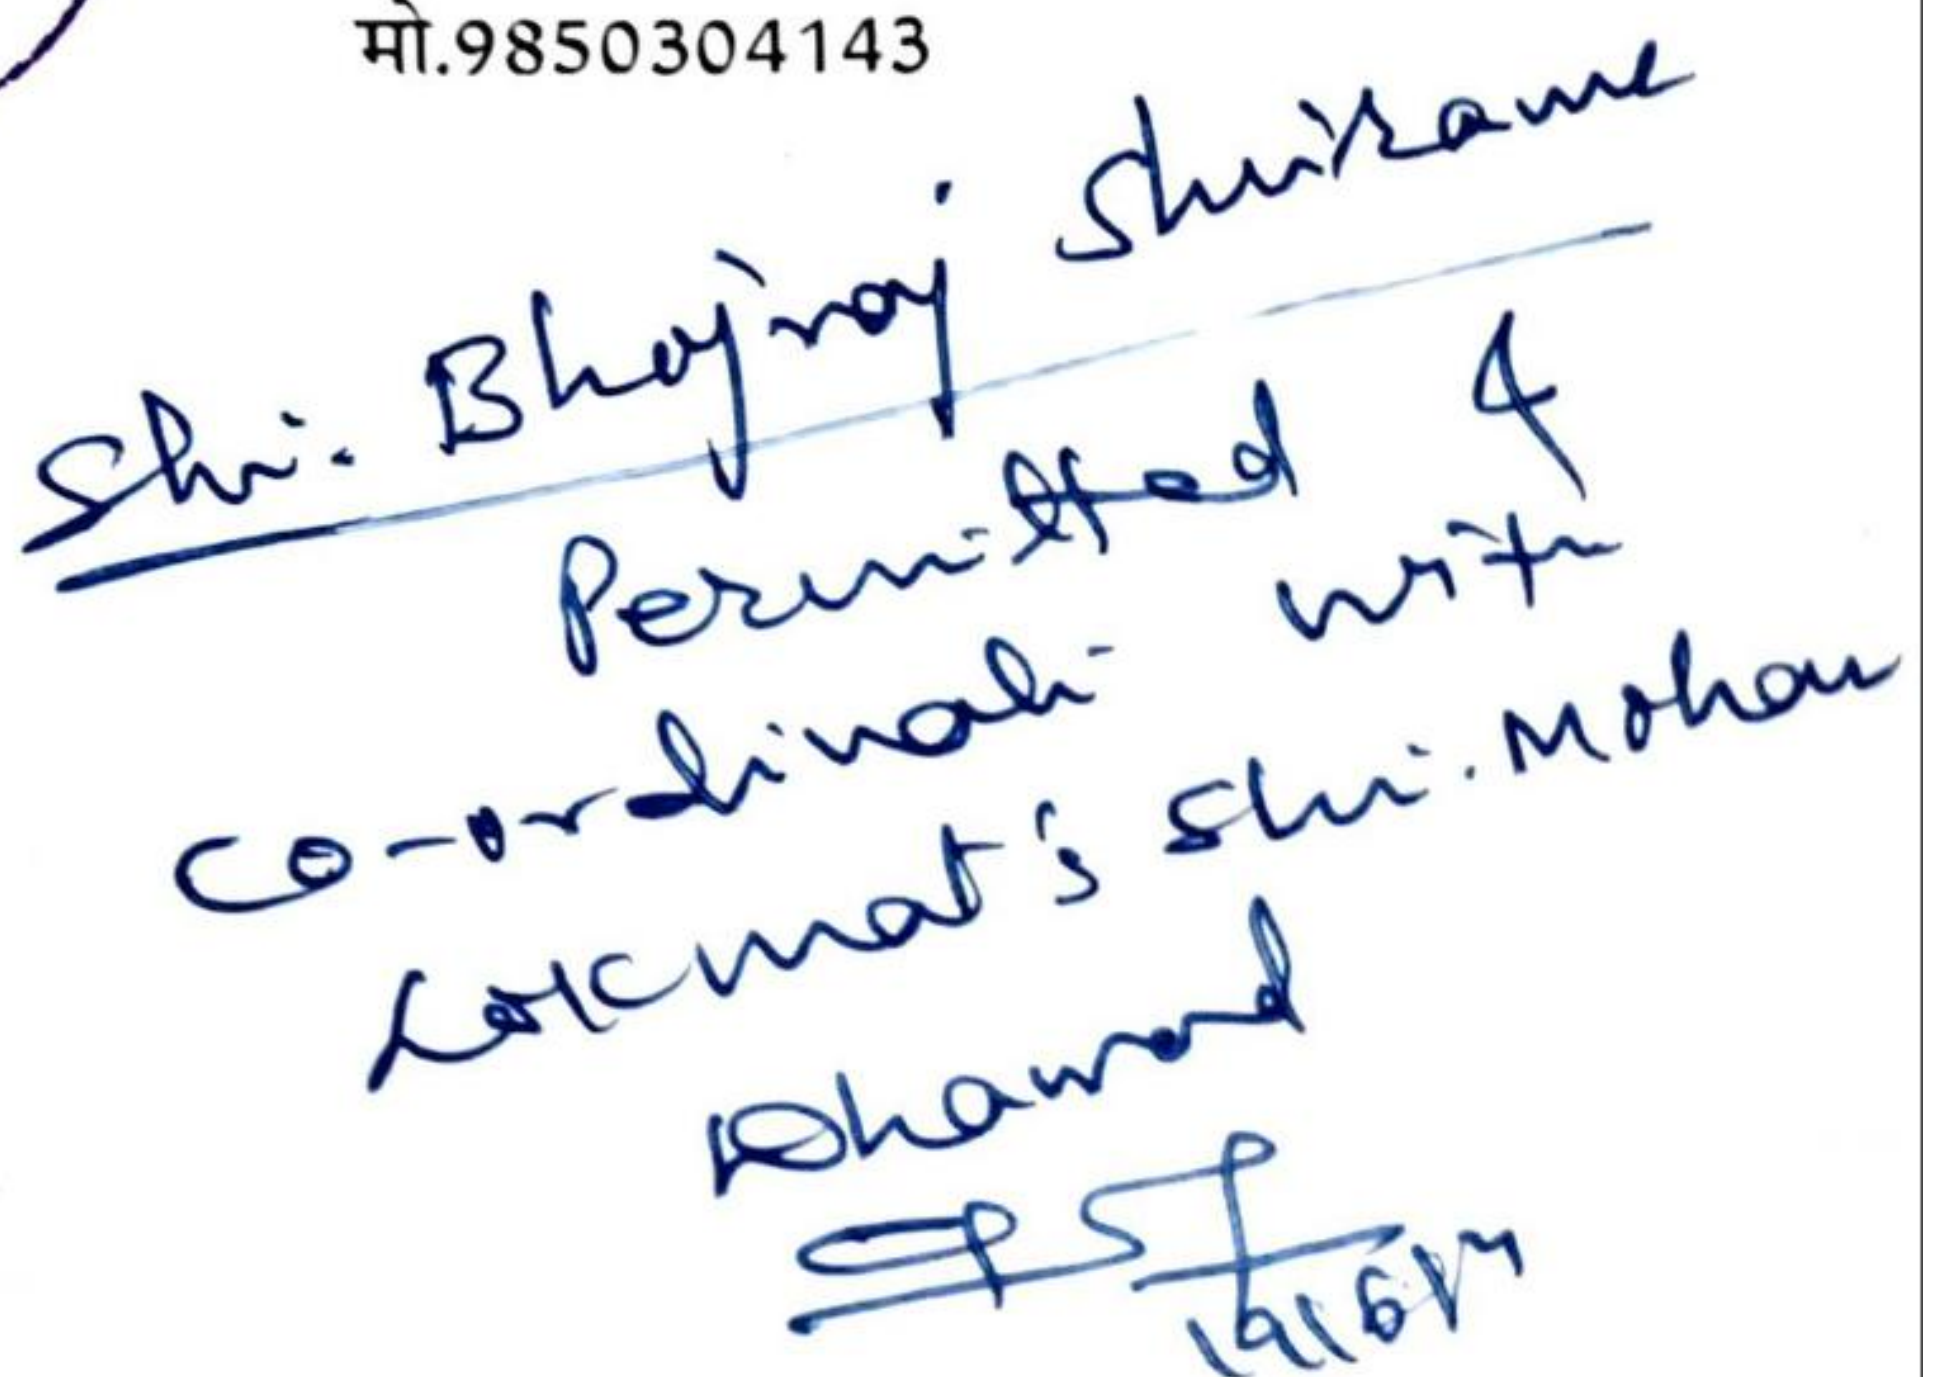 मो.9850304143
Shri. Bhojraj Shrirame
Permitted &
co-ordinate with
Lokmat's Shri. Mohan